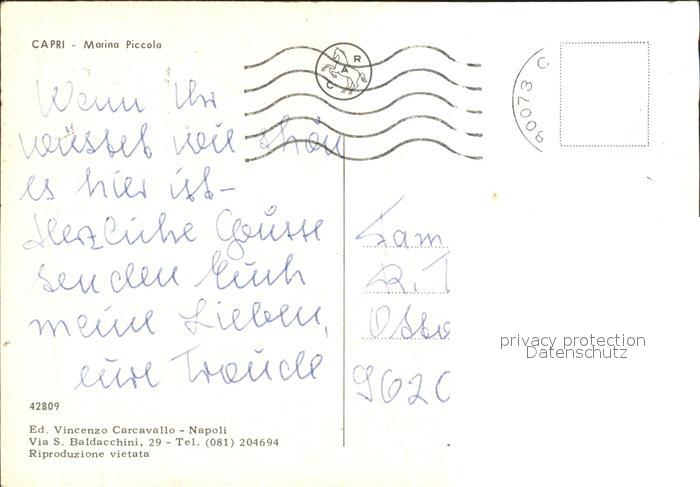 CAPRI - Marina Piccola
R
A
C
80073 C
Wenn Ihr
wüsstet wie schön
es hier ist -
Herzliche Grüsse
senden Euch
meine Lieben,
eure Traude
Fam
R. T
9620
privacy protection
Datenschutz
42809
Ed. Vincenzo Carcavallo - Napoli
Via S. Baldacchini, 29 - Tel. (081) 204694
Riproduzione vietata